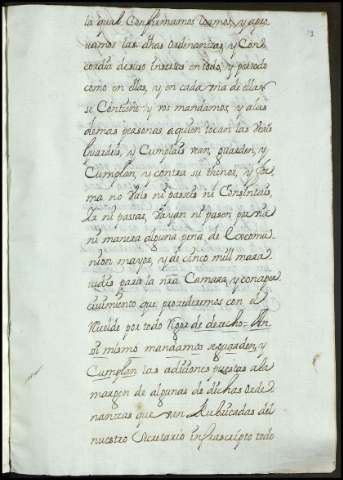 la qual Confirmamos Loamos, y apro
vamos las dhas ordenanzas, y Con
cordia de suso insertas en todo, y por todo
como en ellas, y en cada una de ellas
se Contiene y vos mandamos, y a las
demas personas a quien tocan las veais
Guardeis, y Cumplais vean, guarden, y
Cumplan, y contra su thenor, y for
ma no vais ni paseis ni Consintais
ir ni pasar, vayan ni pasen por via
ni manera alguna pena de excomu
nion mayor, y de cinco mill mara
vedis para la nra Camara, y con aper
civimiento que procederemos con el
por todo rigor de derecho. An
si mismo mandamos se guarden, y
Cumplan las adiciones puestas a la
margen de algunas de dichas orde
nanzas que van Rubricadas del
nuestro Secretario infraescripto todo
13